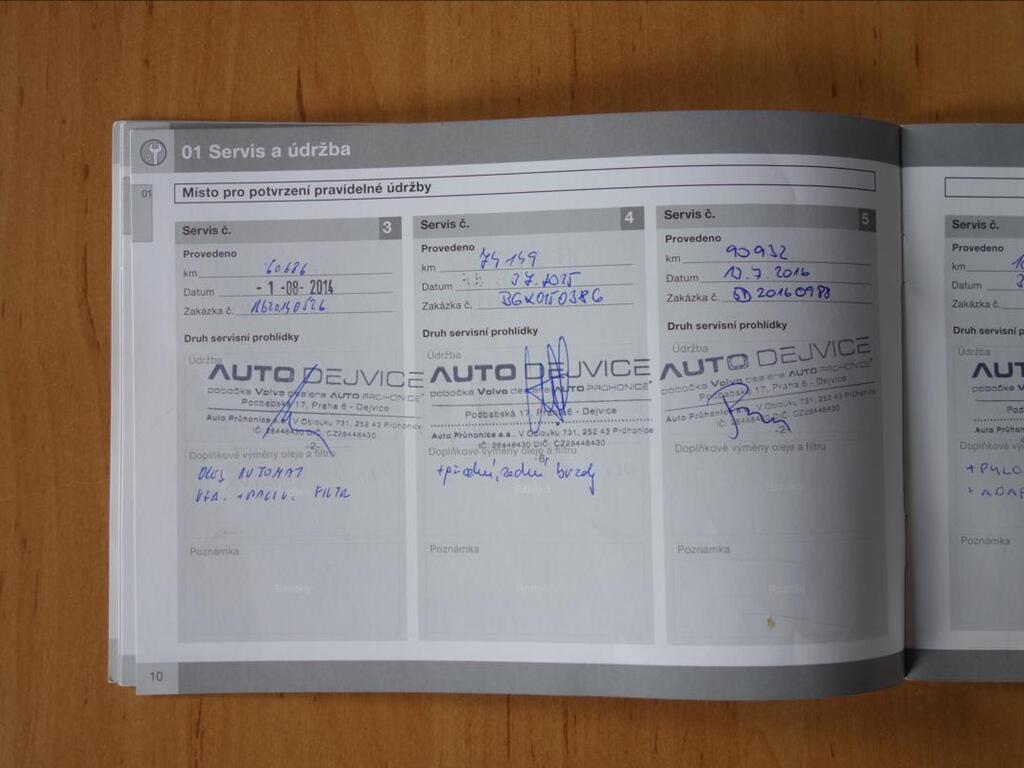 01 Servis a údržba
01
Místo pro potvrzení pravidelné údržby
Servis č. 3
Provedeno
km 60686
Datum - 1 -08- 2014
Zakázka č.
Druh servisní prohlídky
Údržba
AUTO DEJVICE
pobočka Volvo dealera AUTO PRŮHONICE
Podbabská 17, Praha 6 - Dejvice
Auto Průhonice a.s., V Oblouku 731, 252 43 Průhonice
IČ: 28448430 DIČ: CZ28448430
-2-
Doplňkové výměny oleje a filtru
OLEJ AUTOMAT
FILTR
Poznámka
Servis č. 4
Provedeno
km 74149
Datum 3.7.2015
Zakázka č.
Druh servisní prohlídky
Údržba
AUTO DEJVICE
pobočka Volvo dealera AUTO PRŮHONICE
Podbabská 17, Praha 6 - Dejvice
Auto Průhonice a.s., V Oblouku 731, 252 43 Průhonice
IČ: 28448430 DIČ: CZ28448430
Doplňkové výměny oleje a filtru
+přední, zadní brzdy
Poznámka
Servis č. 5
Provedeno
km 90932
Datum 12.7.2016
Zakázka č. 20160988
Druh servisní prohlídky
Údržba
AUTO DEJVICE
pobočka Volvo dealera AUTO PRŮHONICE
Podbabská 17, Praha 6 - Dejvice
Auto Průhonice a.s., V Oblouku 731, 252 43 Průhonice
IČ: 28448430 DIČ: CZ28448430
-2-
Doplňkové výměny oleje a filtru
Poznámka
10
Servis č.
Provedeno
km
Datum
Zakázka č.
Druh servisní
Údržba
AUT
Auto Průhon
Doplňkové
+ PYLO
Poznámka